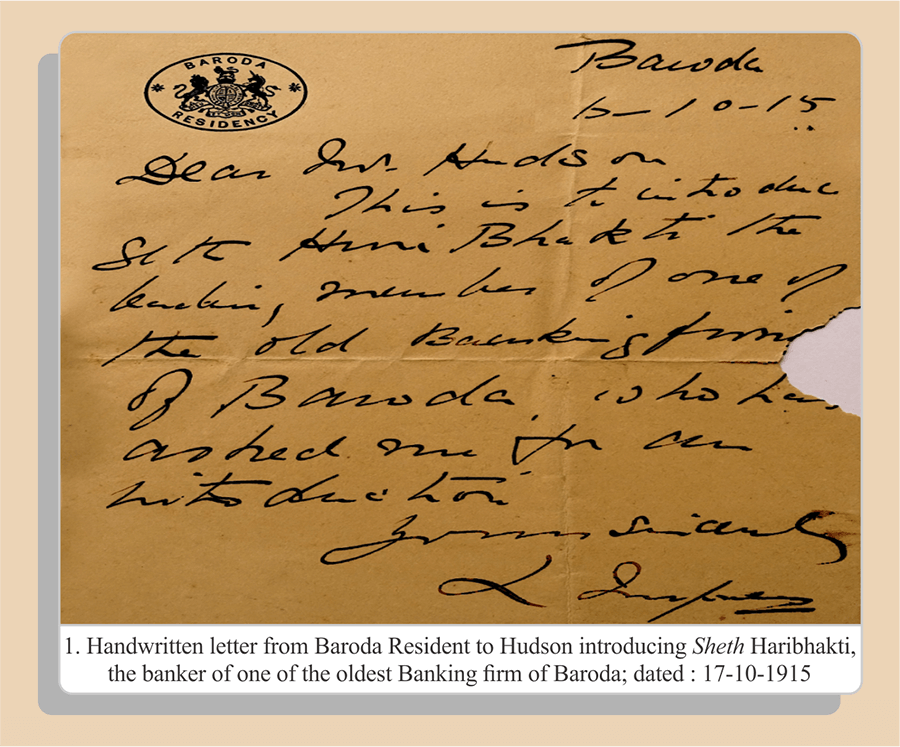 BARODA
RESIDENCY
Baroda
10-15
Dear Mr. Hudson
This is to introduce
Seth Hari Bhakti the
leading member of one of
the old Banking firms
of Baroda, who has
asked me for an
introduction
Yours sincerely
L
1. Handwritten letter from Baroda Resident to Hudson introducing Sheth Haribhakti,
the banker of one of the oldest Banking firm of Baroda; dated : 17-10-1915